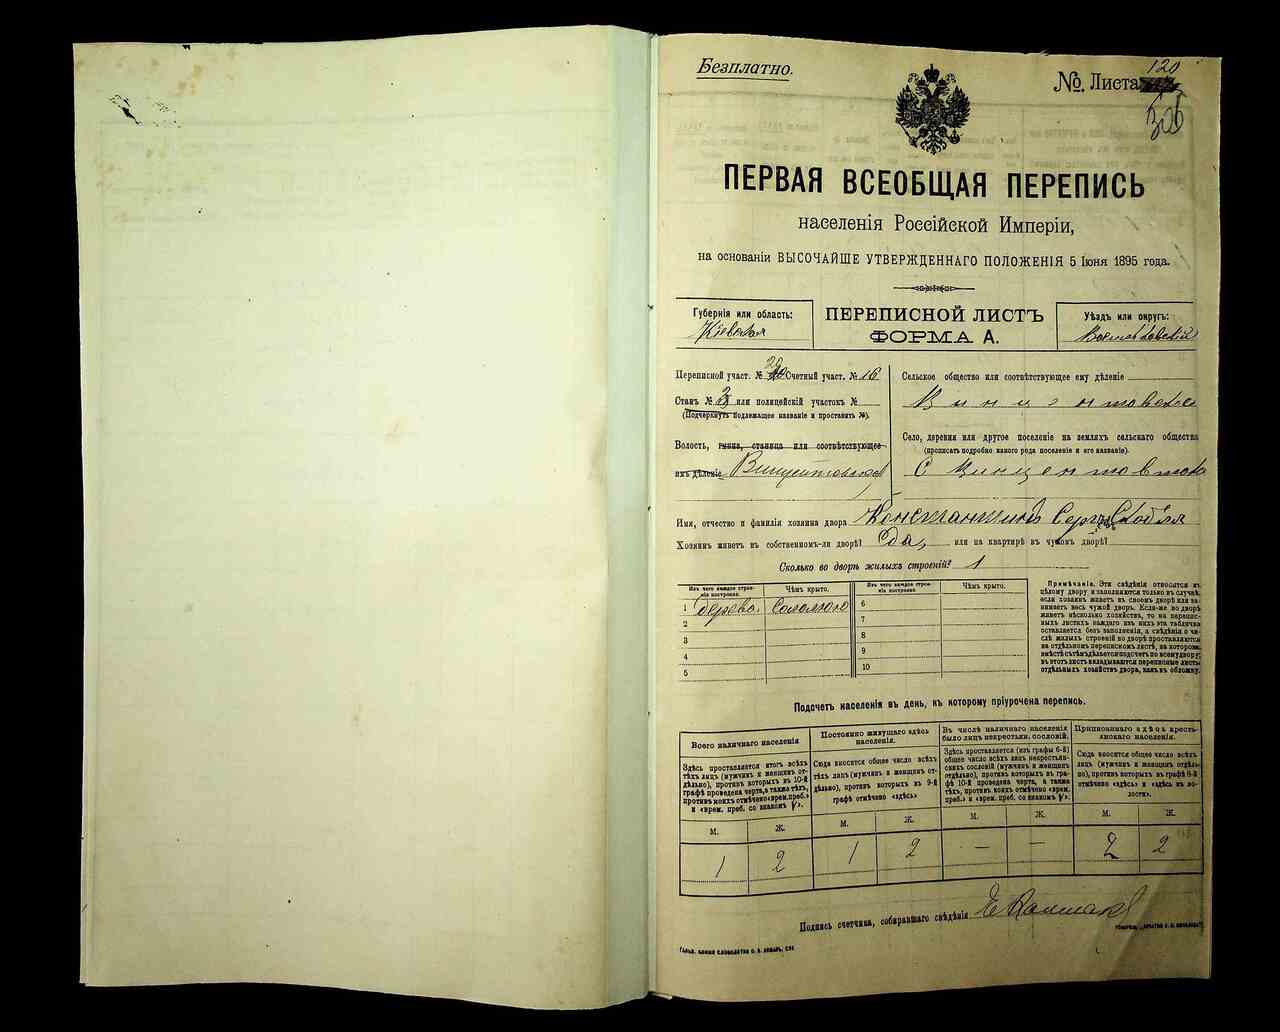 Безплатно.
№. Листа 120
326
ПЕРВАЯ ВСЕОБЩАЯ ПЕРЕПИСЬ
населенія Россійской Имперіи,
на основаніи ВЫСОЧАЙШЕ УТВЕРЖДЕННАГО ПОЛОЖЕНІЯ 5 Іюня 1895 года.
Губернія или область:
Кіевская
ПЕРЕПИСНОЙ ЛИСТЪ
ФОРМА А.
Уѣздъ или округъ:
Переписной участ. № Счетный участ. № 16
Станъ № 3 или полицейскій участокъ №
(Подчеркнуть подлежащее названіе и проставить №).
Волость, гмина, станица или соотвѣтствующее
имъ дѣленіе
Сельское общество или соотвѣтствующее ему дѣленіе
Винцентовское
Село, деревня или другое поселеніе на земляхъ сельскаго общества
(прописать подробно какого рода поселеніе и его названіе).
С Винцентовка
Имя, отчество и фамилія хозяина двора Константинъ
Хозяинъ живетъ въ собственномъ-ли дворѣ? Да, или на квартирѣ въ чужомъ дворѣ?
Сколько во дворѣ жилыхъ строеній? 1
Изъ чего каждое строе-
ніе построено.
Чѣмъ крыто.
1 дерева. Соломою
2
3
4
5
Изъ чего каждое строе-
ніе построено.
Чѣмъ крыто.
6
7
8
9
10
Примѣчаніе. Эти свѣдѣнія относятся къ
цѣлому двору и заполняются только въ случаѣ,
если хозяинъ живетъ въ своемъ дворѣ или за-
нимаетъ весь чужой дворъ. Если-же во дворѣ
живетъ нѣсколько хозяйствъ, то на перепис-
ныхъ листахъ каждаго изъ нихъ эта табличка
оставляется безъ заполненія, а свѣдѣнія о чи-
слѣ жилыхъ строеній во дворѣ проставляются
на отдѣльномъ переписномъ листѣ, на которомъ
вмѣстѣ съ тѣмъ дѣлается и подсчетъ по всему двору;
въ этотъ листъ вкладываются переписные листы
отдѣльныхъ хозяйствъ двора, какъ въ обложку.
Подсчетъ населенія въ день, къ которому пріурочена перепись.
Всего наличнаго населенія
Здѣсь проставляется итогъ всѣхъ
тѣхъ лицъ (мужчинъ и женщинъ от-
дѣльно), противъ которыхъ въ 10-й
графѣ проведена черта, а также тѣхъ,
противъ коихъ отмѣчено «врем. преб.»
и «врем. преб. со знакомъ V».
Постоянно живущаго здѣсь
населенія.
Сюда вносится общее число всѣхъ
тѣхъ лицъ (мужчинъ и женщинъ от-
дѣльно), противъ которыхъ въ 9-й
графѣ отмѣчено «здѣсь»
Въ числѣ наличнаго населенія
было лицъ некрестьян. сословій.
Здѣсь проставляется (изъ графы 6-й)
общее число всѣхъ лицъ некрестьян-
скихъ сословій (мужчинъ и женщинъ
отдѣльно), противъ которыхъ въ гра-
фѣ 10-й проведена черта, а также
тѣхъ, противъ коихъ отмѣчено «врем.
преб.» и «врем. преб. со знакомъ V».
Приписаннаго здѣсь кресть-
янскаго населенія.
Сюда вносится общее число всѣхъ
лицъ (мужчинъ и женщинъ отдѣль-
но), противъ которыхъ въ графѣ 8-й
отмѣчено «здѣсь» и «здѣсь въ во-
лости».
М. Ж. М. Ж. М. Ж. М. Ж.
1 2 1 2 — — 2 2
Подпись счетчика, собиравшаго свѣдѣнія